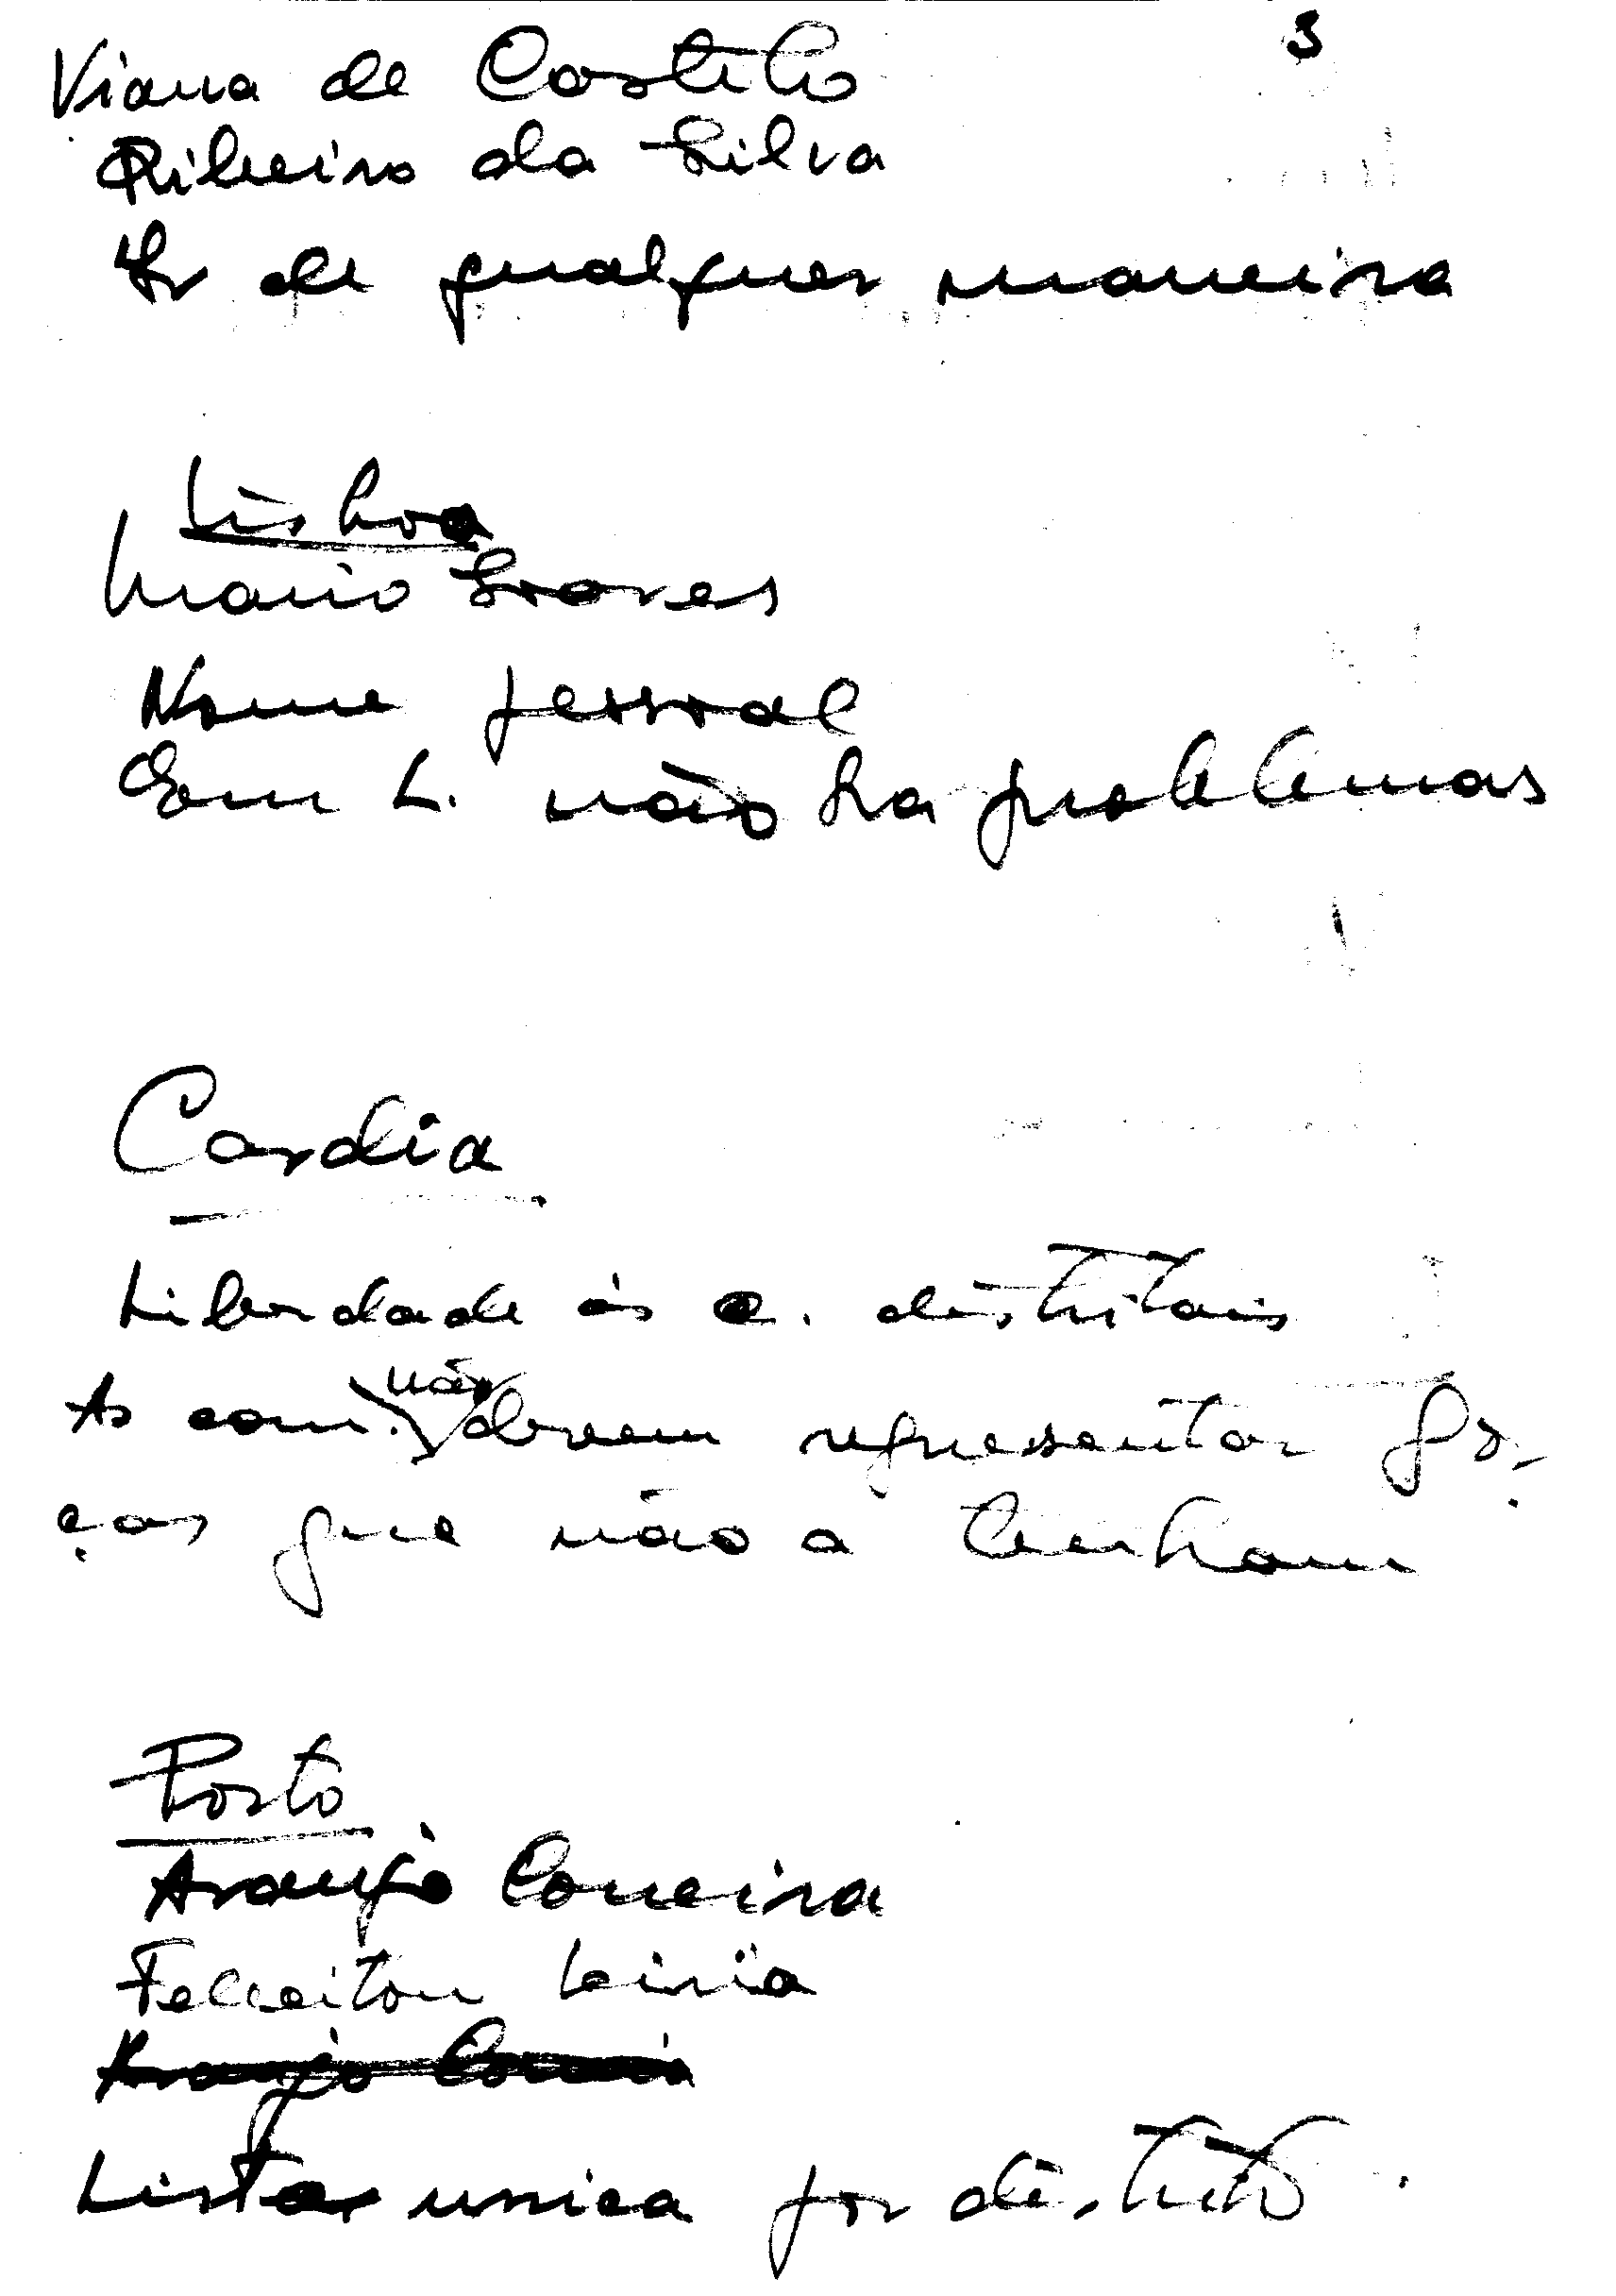 3
Viana de Castelo
Ribeiro da Silva
Ir de qualquer maneira
Lisboa
Mario Soares
Nome pessoal
Em L. não ha problemas
Cardia
Liberdade ás c. distritais
As com. não devem representar for-
ças que não a tenham
Porto
Araujo Correira
Leiria
Araujo Correia
Lista unica por distrito